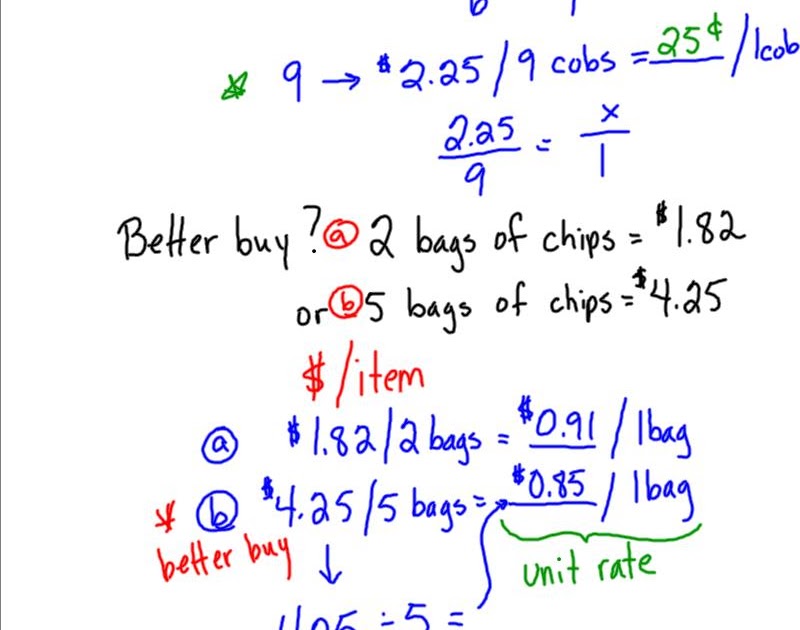 9 → $2.25/9 cobs = 25¢/1cob
2.25/9 = x/1
Better buy? ⓐ 2 bags of chips = $1.82
or ⓑ 5 bags of chips = $4.25
$/item
ⓐ $1.82/2 bags = $0.91/1bag
* ⓑ $4.25/5 bags = $0.85/1bag
better buy ↓ unit rate
÷ 5 =